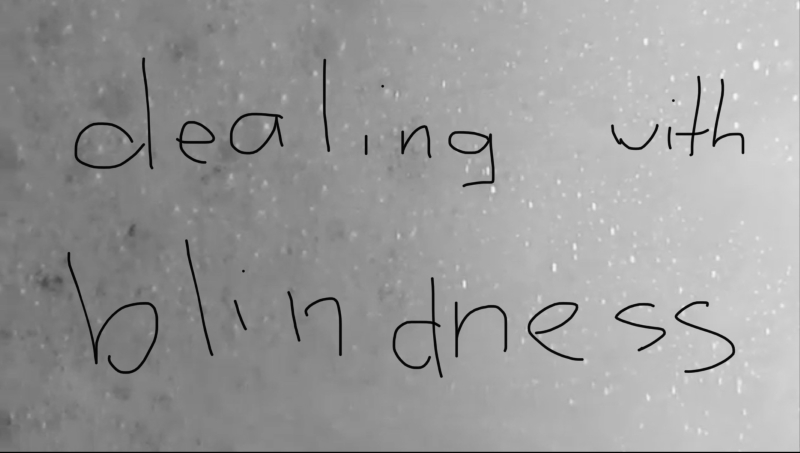 dealing with
blindness